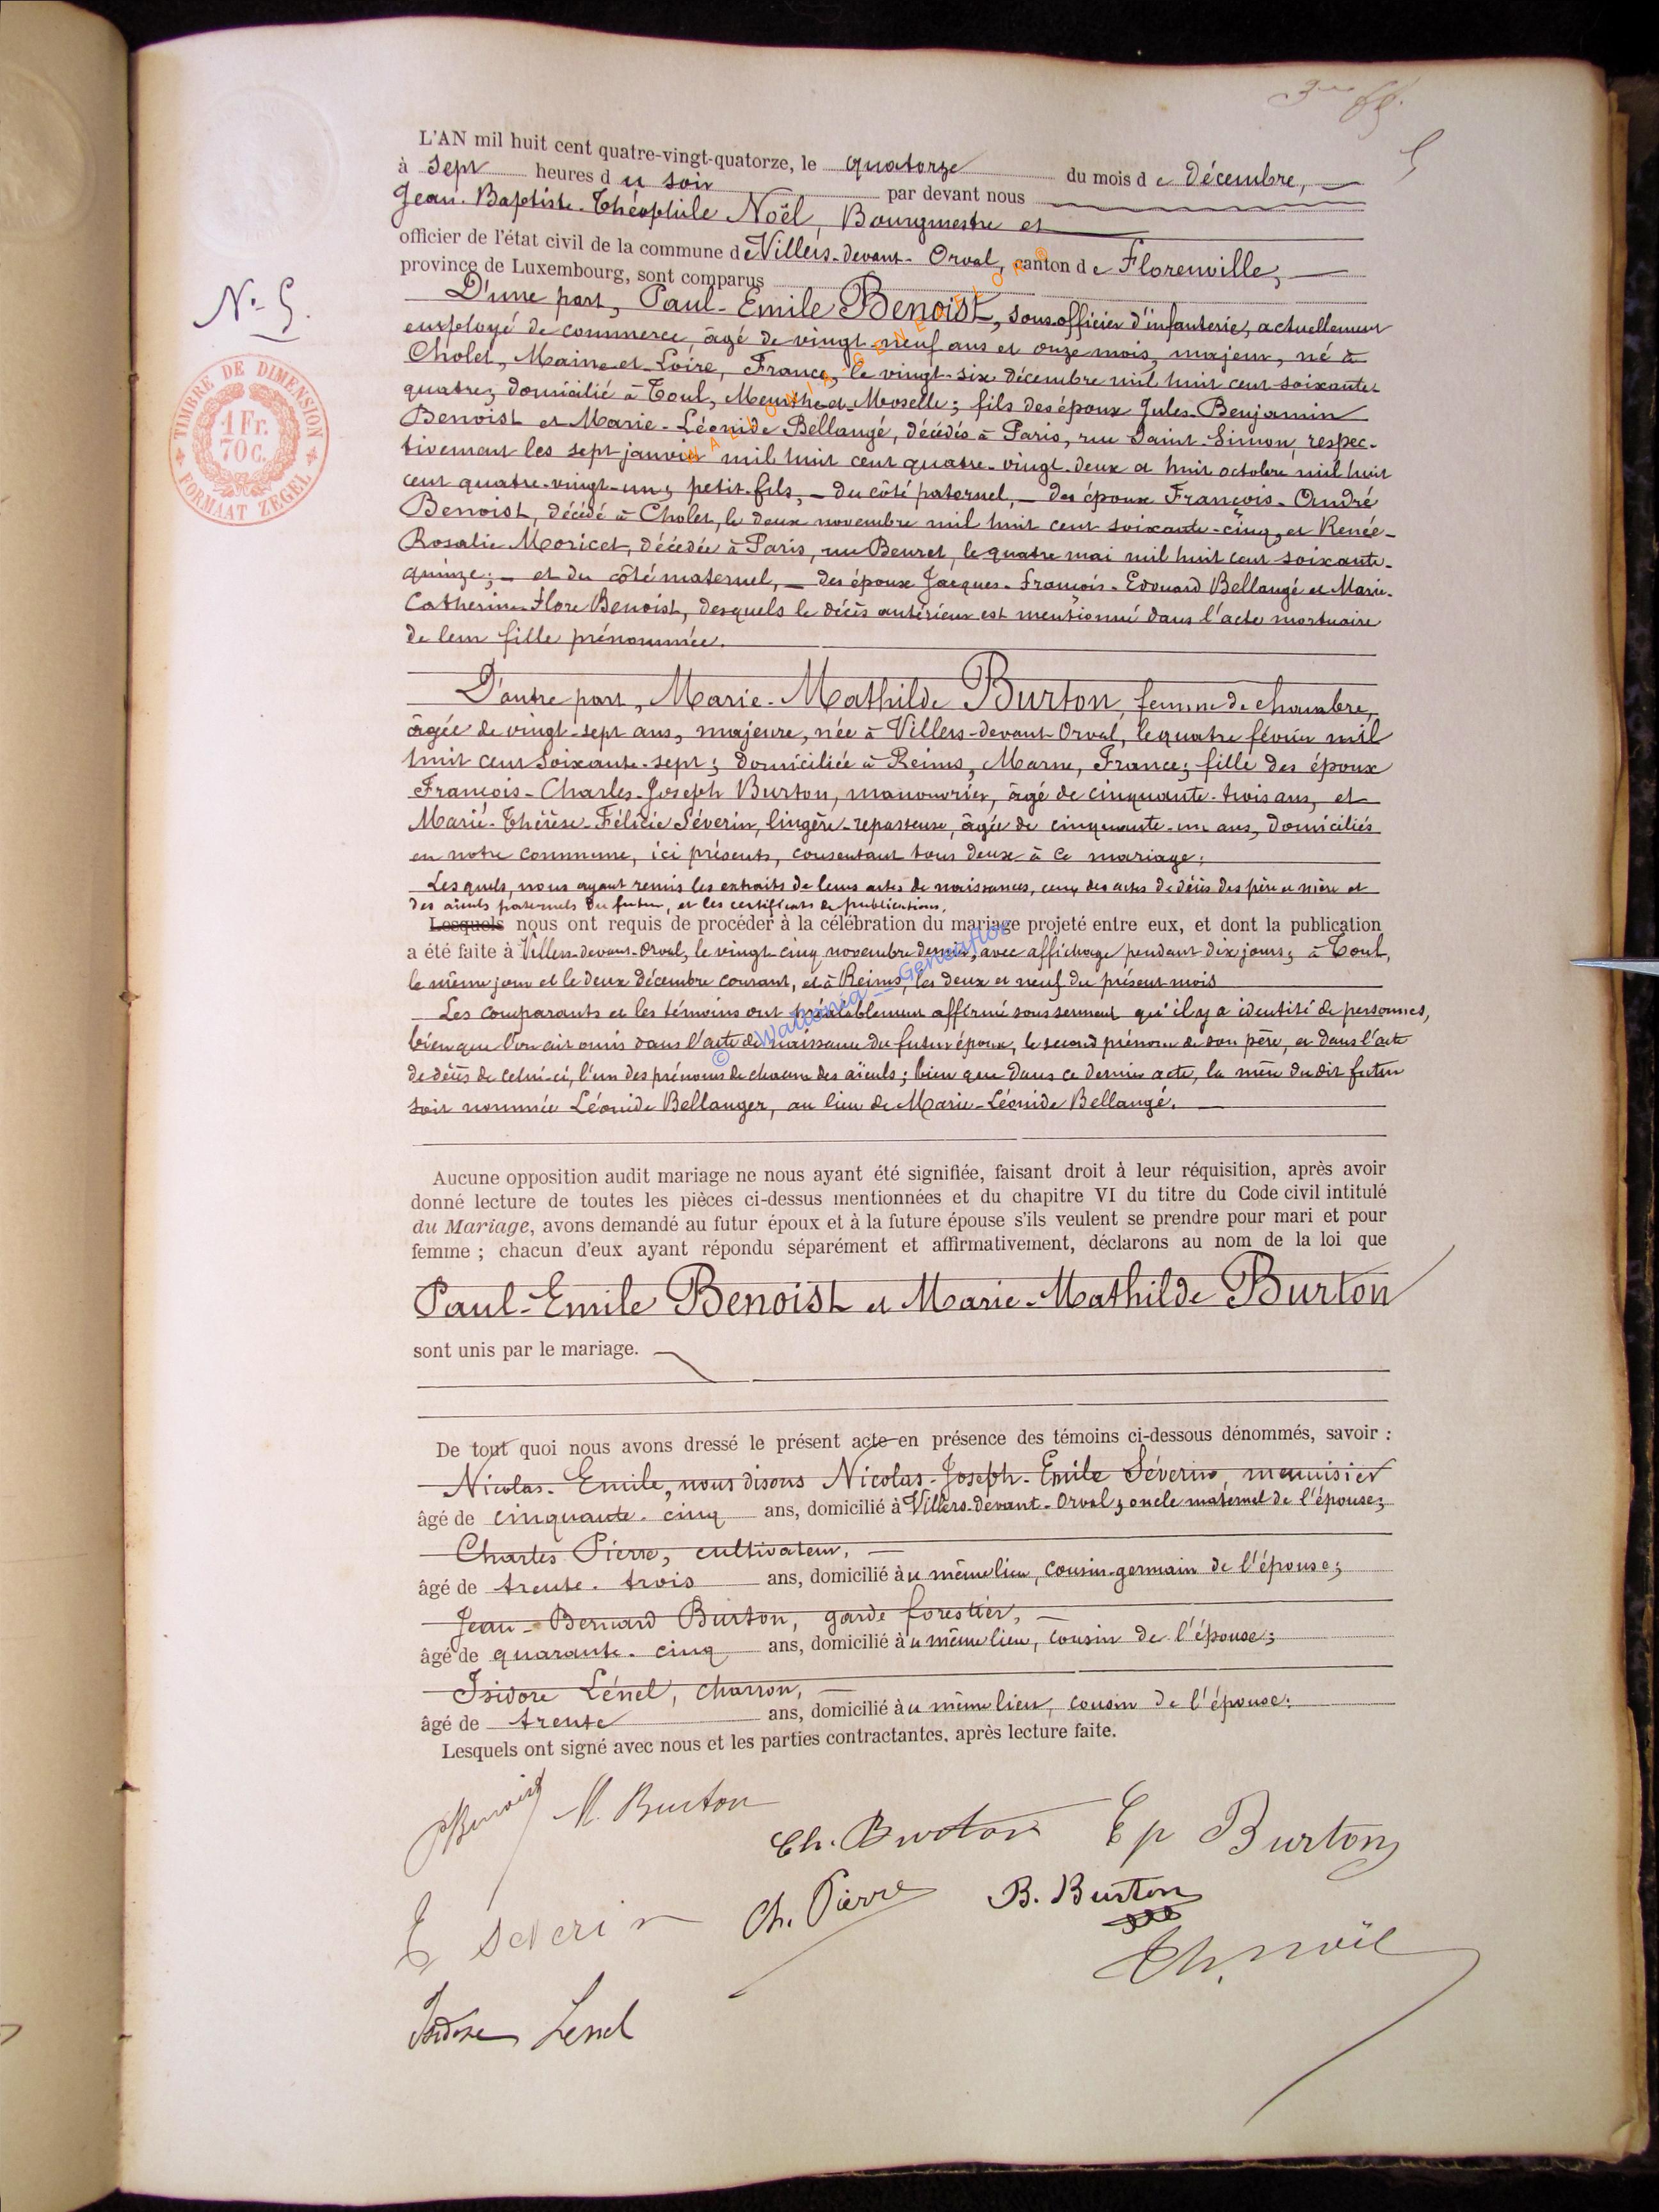 3me ff.
5
L'AN mil huit cent quatre-vingt-quatorze, le quatorze du mois de Décembre,
à sept heures du soir par devant nous
Jean-Baptiste-Théophile Noël, Bourgmestre et
officier de l'état civil de la commune de Villers-devant-Orval, canton de Florenville,
province de Luxembourg, sont comparus
N° 5.
D'une part, Paul-Emile Benoist, sous-officier d'infanterie, actuellement
employé de commerce, âgé de vingt-neuf ans et onze mois, majeur, né à
Cholet, Maine-et-Loire, France, le vingt-six décembre mil huit cent soixante-
quatre, domicilié à Toul, Meurthe-et-Moselle; fils des époux Jules-Benjamin
Benoist et Marie-Léonide Bellangé, décédés à Paris, rue Saint-Simon, respec-
tivement les sept janvier mil huit cent quatre-vingt-deux et huit octobre mil huit
cent quatre-vingt-un; petit-fils, - du côté paternel, - des époux François-André
Benoist, décédé à Cholet, le deux novembre mil huit cent soixante-cinq, et Renée-
Rosalie Moricet, décédée à Paris, rue Beuret, le quatre mai mil huit cent soixante-
quinze; - et du côté maternel, - des époux Jacques-François-Edouard Bellangé et Marie-
Catherine-Flore Benoist, desquels le décès antérieur est mentionné dans l'acte mortuaire
de leur fille prénommée.
TIMBRE DE DIMENSION
1 Fr.
70 C.
FORMAAT ZEGEL
D'autre part, Marie-Mathilde Burton, femme de chambre,
âgée de vingt-sept ans, majeure, née à Villers-devant-Orval, le quatre février mil
huit cent soixante-sept; domiciliée à Reims, Marne, France; fille des époux
François-Charles-Joseph Burton, manouvrier, âgé de cinquante-trois ans, et
Marie-Thérèse-Félicie Séverin, lingère-repasseuse, âgée de cinquante-un ans, domiciliés
en notre commune, ici présents, consentant tous deux à ce mariage;
Lesquels, nous ayant remis les extraits de leurs actes de naissances, ceux des actes de décès des père et mère et
des aïeuls paternels du futur, et les certificats de publications,
Lesquels nous ont requis de procéder à la célébration du mariage projeté entre eux, et dont la publication
a été faite à Villers-devant-Orval, le vingt-cinq novembre dernier, avec affichage pendant dix jours; à Toul,
le même jour et le deux décembre courant, et à Reims, les deux et neuf du présent mois
Les comparants et les témoins ont préalablement affirmé sous serment qu'il y a identité de personnes,
bien que l'on ait omis dans l'acte de naissance du futur époux, le second prénom de son père, et dans l'acte
de décès de celui-ci, l'un des prénoms de chacun des aïeuls; bien que dans ce dernier acte, la mère du dit futur
soit nommée Léonide Bellanger, au lieu de Marie-Léonide Bellangé.
© Wallonia - Geneaflor
Aucune opposition audit mariage ne nous ayant été signifiée, faisant droit à leur réquisition, après avoir
donné lecture de toutes les pièces ci-dessus mentionnées et du chapitre VI du titre du Code civil intitulé
du Mariage, avons demandé au futur époux et à la future épouse s'ils veulent se prendre pour mari et pour
femme ; chacun d'eux ayant répondu séparément et affirmativement, déclarons au nom de la loi que
Paul-Emile Benoist et Marie-Mathilde Burton
sont unis par le mariage.
De tout quoi nous avons dressé le présent acte en présence des témoins ci-dessous dénommés, savoir :
Nicolas-Emile, nous disons Nicolas-Joseph-Emile Séverin, menuisier
âgé de cinquante-cinq ans, domicilié à Villers-devant-Orval, oncle maternel de l'épouse;
Charles Pierre, cultivateur,
âgé de trente-trois ans, domicilié au même lieu, cousin-germain de l'épouse;
Jean-Bernard Burton, garde forestier,
âgé de quarante-cinq ans, domicilié au même lieu, cousin de l'épouse;
Isidore Lénel, charron,
âgé de trente ans, domicilié au même lieu, cousin de l'épouse.
Lesquels ont signé avec nous et les parties contractantes, après lecture faite.
PBenoist M. Burton
Ch. Burton Ep Burton
E Severin Ch. Pierre B. Burton
Th. Noël
Isidore Lenel